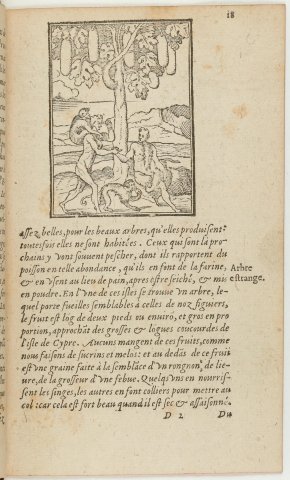 18
assez belles, pour les beaux arbres, qu'elles produisent:
toutesfois elles ne sont habitées. Ceux qui sont là pro-
chains y vont souvent pescher, dont ils rapportent du
poisson en telle abondance, qu'ils en font de la farine,
& en vsent au lieu de pain, apres estre seiché, & mis
en poudre. En l'vne de ces isles se trouue vn arbre, le-
quel porte fueilles semblables à celles de noz figuiers,
le fruit est log de deux pieds ou enuirō, et gros en pro
portion, approchāt des grosses & lōgues coucourdes de
l'isle de Cypre. Aucuns mangent de ces fruits, comme
nous faisons de sucrins et melons: et au dedās de ce fruit
est vne graine faite à la semblāce d'vn rongnon, de lie-
ure, de la grosseur d'vne febue. Quelqu'vns en nourris-
sent les singes, les autres en font colliers pour mettre au
col: car cela est fort beau quand il est sec & assaisonné.
Arbre
estrange.
D 2. Du